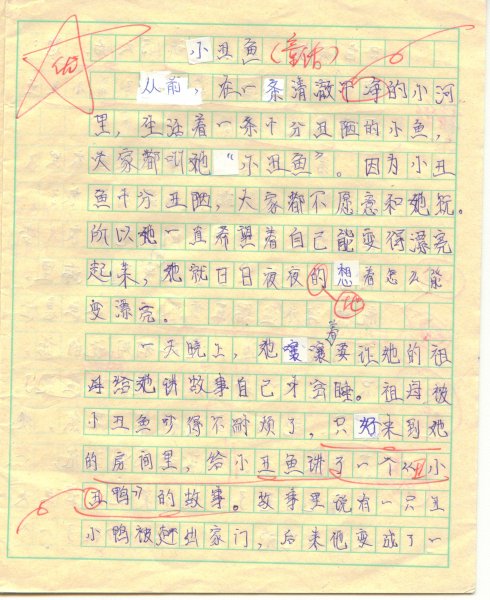 优
小丑鱼(童话)
从前,在一条清澈干净的小河
里,生活着一条十分丑陋的小鱼,
大家都叫她“小丑鱼”。因为小丑
鱼十分丑陋,大家都不愿意和她玩。
所以她一直希望着自己能变得漂亮
起来,她就日日夜夜的想着怎么能
地
变漂亮。
着
一天晚上,她嚷嚷要让她的祖
母给她讲故事自己才睡。祖母被
小丑鱼吵得不耐烦了,只好来到她
的房间里,给小丑鱼讲了一个《丑小
丑鸭》的故事。故事里说有一只丑
小鸭被赶出家门,后来他变成了一